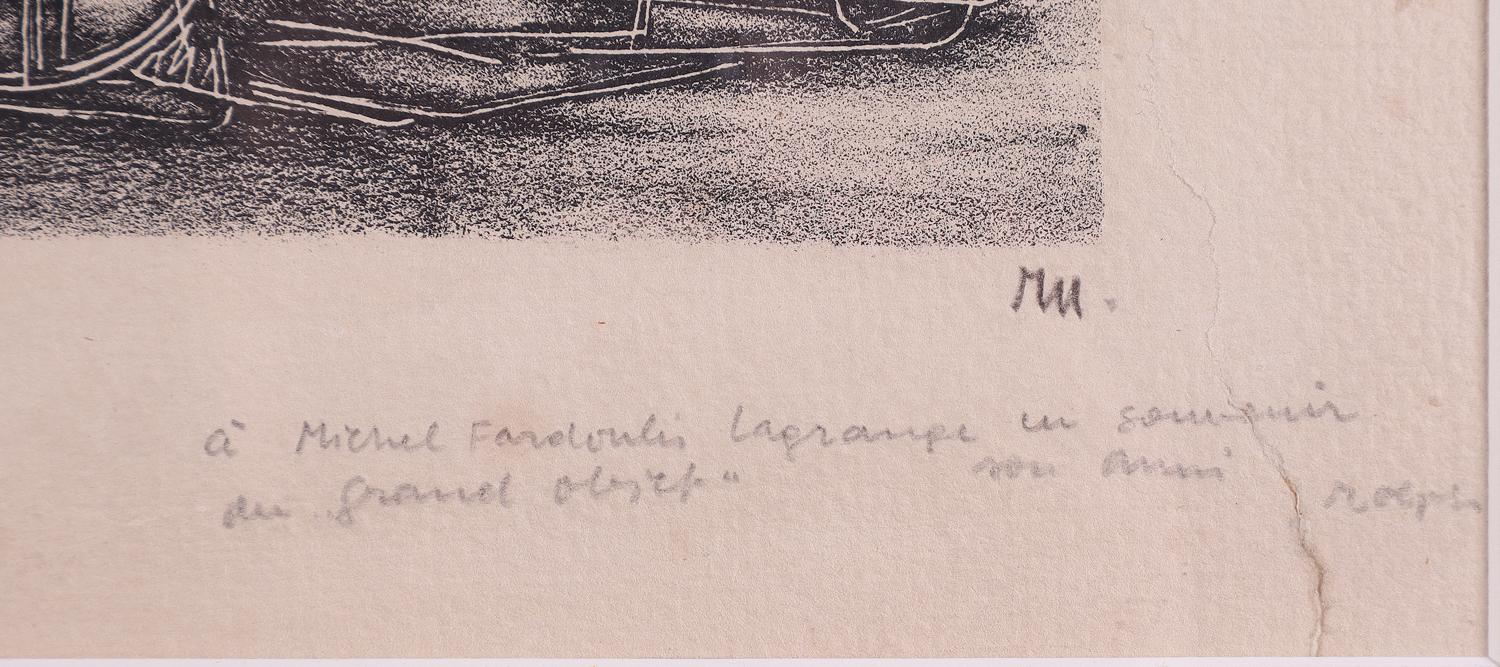 RU.
à Michel Fardoulis Lagrange en souvenir
du "grand objet" son ami